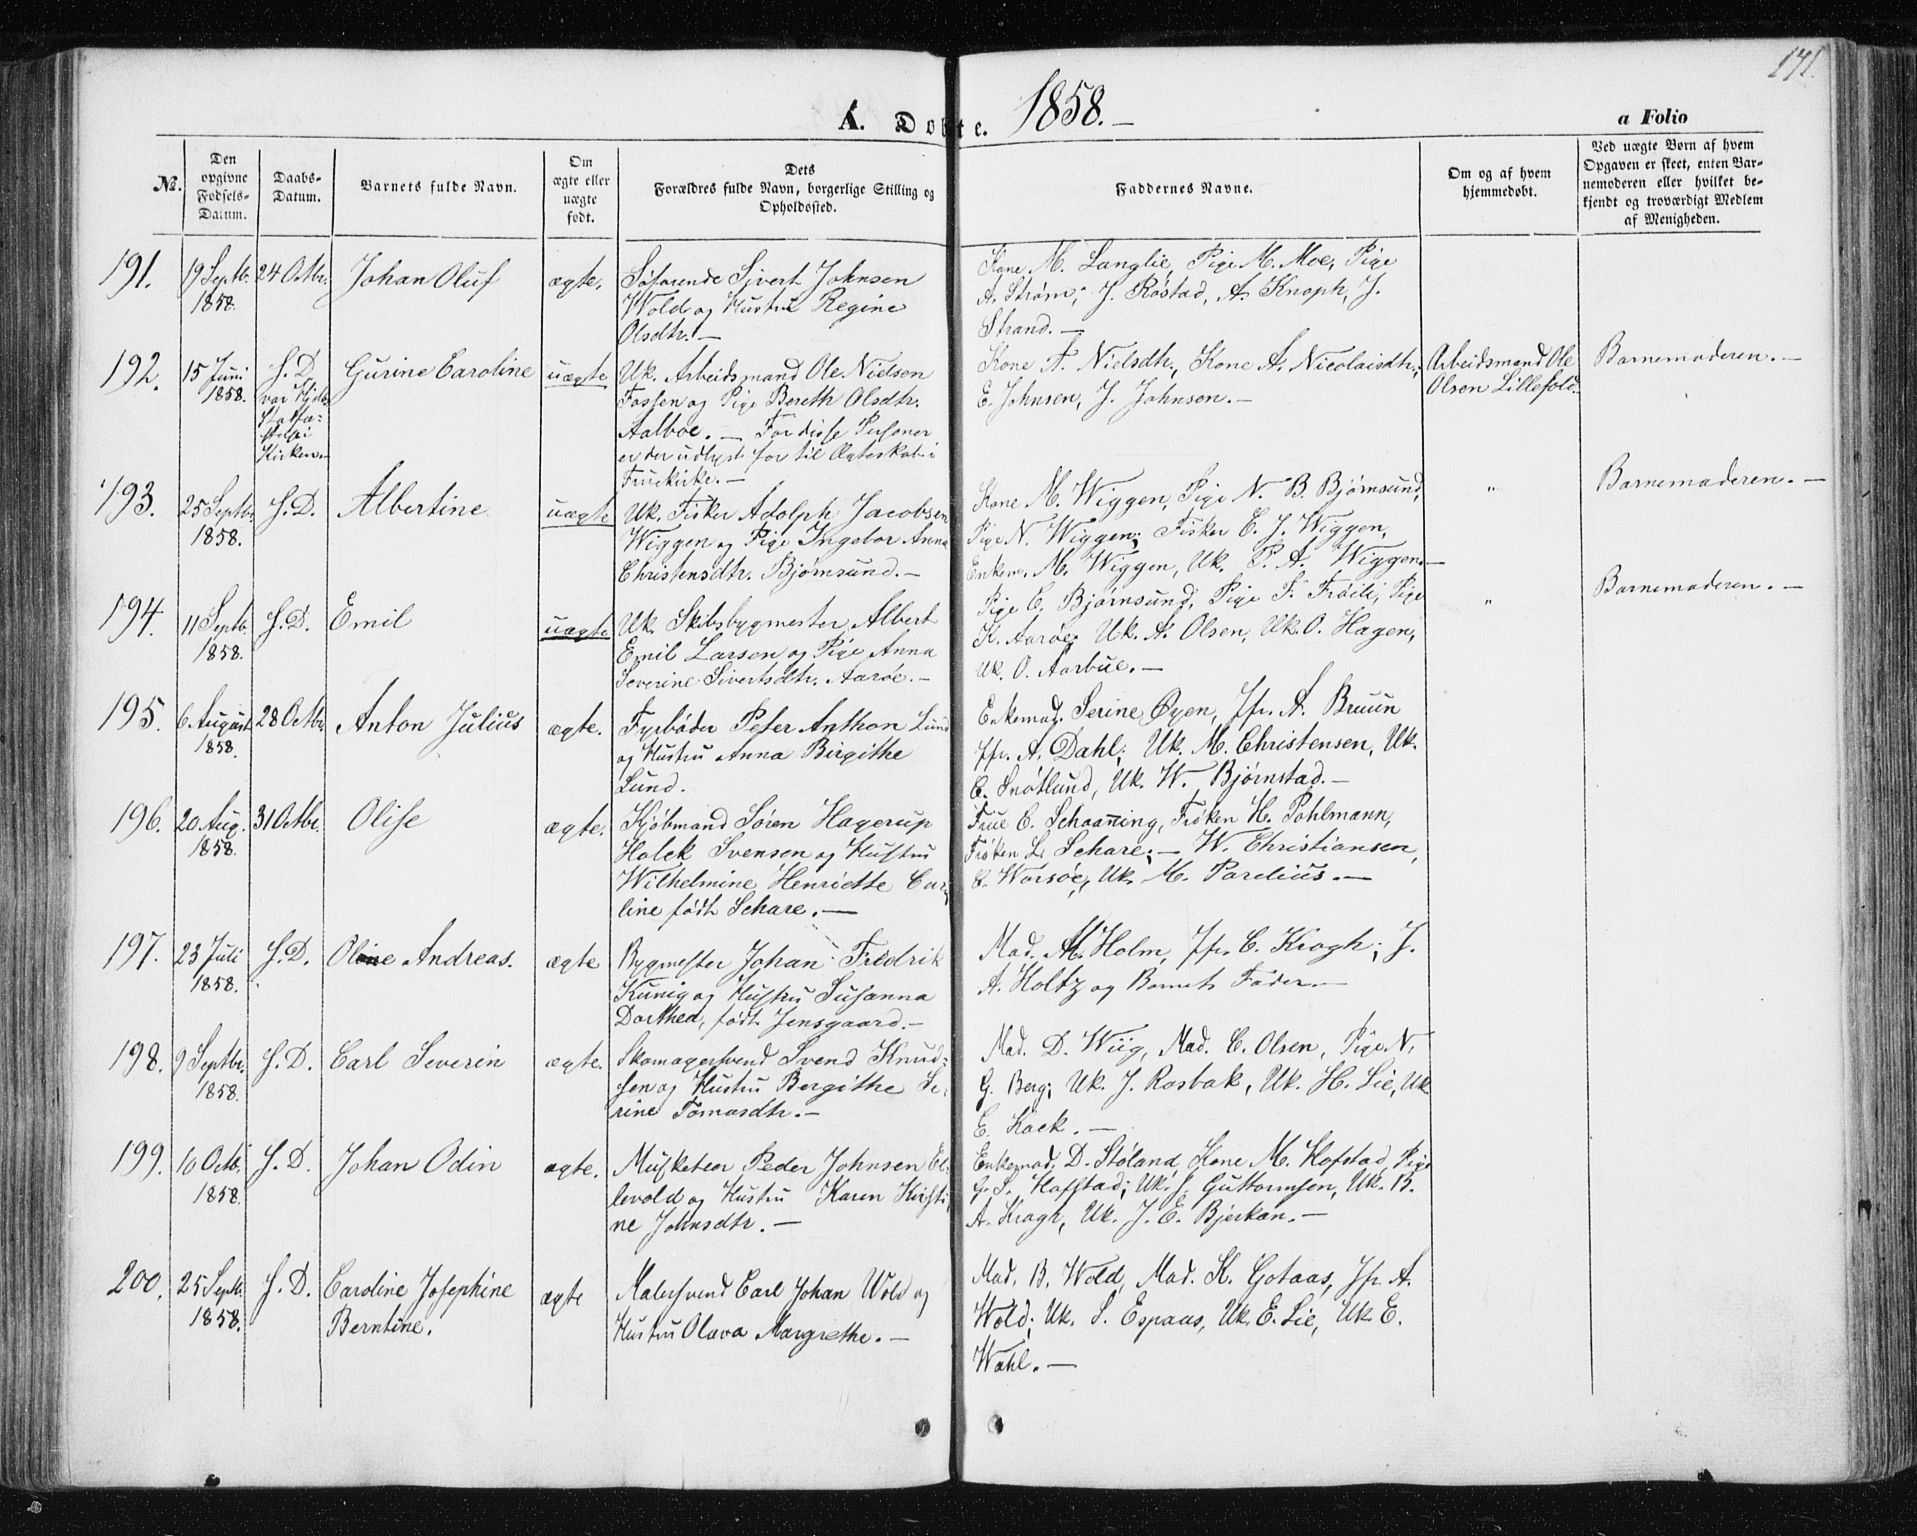 141.
A. Døbte. 1858.—
a Folio
No.
Den opgivne Fødsels-Datum.
Daabs-Datum.
Barnets fulde Navn.
Om ægte eller uægte født.
Dets Forældres fulde Navn, borgerlige Stilling og Opholdssted.
Faddernes Navne.
Om og af hvem hjemmedøbt.
Ved uægte Børn af hvem Opgaven er skeet, enten Barnemoderen eller hvilket bekjendt og troværdigt Medlem af Menigheden.
191. 19 Septb. 1858. 24 Octbr. Johan Oluf ægte.
Søfarende Sjvert Johnsen
Wold og Hustru Regine
Olsdtr.—
Kone M. Langlie, Pige M. Moe, Pige
A. Strøm; J. Röstad, A. Knoph, J.
Strand.—
192. 15 Juni 1858. S. D.
Kirken.
Gurine Caroline uægte
Uk. Arbeidsmand Ole Nielsen
Fossen og Pige Bereth Olsdtr.
Aalboe.— For disse Personer
er der udlyst for til Ægteskab i
Fruekirke.—
Kone F. Nielsdtr., Kone A. Nicolaisdtr.;
E. Johnsen, J. Johnsen.—
Arbeidsmand Ole
Olsen Lillefold.
Barnemoderen.—
193. 25 Septbr. 1858. S. D. Albertine uægte
Uk. Fisker Adolph Jacobsen
Wiggen og Pige Ingebor Anna
Christensdtr. Bjørnsund.—
Kone M. Wiggen, Pige N. B. Bjørnsund,
Pige N. Wiggen; Fisker C. J. Wiggen,
Enkem. M. Wiggen, Uk. P. A. Wiggen.—
"
Barnemoderen.—
194. 11 Septb. 1858. S. D. Emil uægte
Uk. Skibsbygmester Albert
Emil Larsen og Pige Anna
Severine Sivertsdtr. Aarøe.—
Pige C. Bjørnsund, Pige F. Frøili, Pige
K. Aarøe; Uk. A. Olsen, Uk. O. Hagen,
Uk. O. Aarbue.—
"
Barnemoderen.—
195. 6 August 1858. 28 Octbr. Anton Julius ægte.
Fyrbøder Peter Anthon Lund
og Hustru Anna Birgithe
Lund.
Enkemad. Serine Øyen, Jfr. A. Bruun
Jfr. A. Dahl; Uk. M. Christensen, Uk.
E. Snötlund, Uk. W. Bjørnstad.—
196. 20 Aug. 1858. 31 Octbr. Olise ægte.
Kjøbmand Søren Hagerup
Holck Svensen og Hustru
Wilhelmine Henriette Caro-
line født Schare.—
Frue C. Schaaning, Frøken H. Pohlmann,
Frøken L. Schare;— W. Christiansen,
C. Worsøe, Uk. M. Parelius.—
197. 23 Juli 1858. S. D. Andreas. ægte
Bygmester Johan Fredrik
Kunig og Hustru Susanna
Dorthea, født Jensgaard.—
Mad. M. Holm, Jfr. C. Krogh; J.
A. Holtz og Barnets Fader.—
198. 9 Septbr. 1858. S. D. Carl Severin ægte.
Skomagersvend Svend Knud-
sen og Hustru Bergithe Se-
rine Tomasdtr.—
Mad. D. Wiig, Mad. C. Olsen, Pige N.
G. Berg; Uk. J. Rosbak, Uk. H. Lie, Uk
E. Hack.—
199. 10 Octb. 1858. S. D. Johan Odin ægte.
Musketeer Peder Johnsen El-
levold og Hustru Karen Kirsti-
ne Johnsdtr.—
Enkemad. D. Støland, Kone M. Hofstad, Pige
G. S. Hofstad; Uk. J. Guttormsen, Uk. B.
A. Krogh, Uk. J. E. Bjerkan.—
200. 25 Septb. 1858. S. D. Caroline Josephine
Berntine. ægte
Malersvend Carl Johan Wold og
Hustru Olava Margrethe.—
Mad. B. Wold, Mad. K. Gotaas, Jfr. A.
Wold; Uk. S. Espaas, Uk. E. Lie, Uk E.
Wahl.—